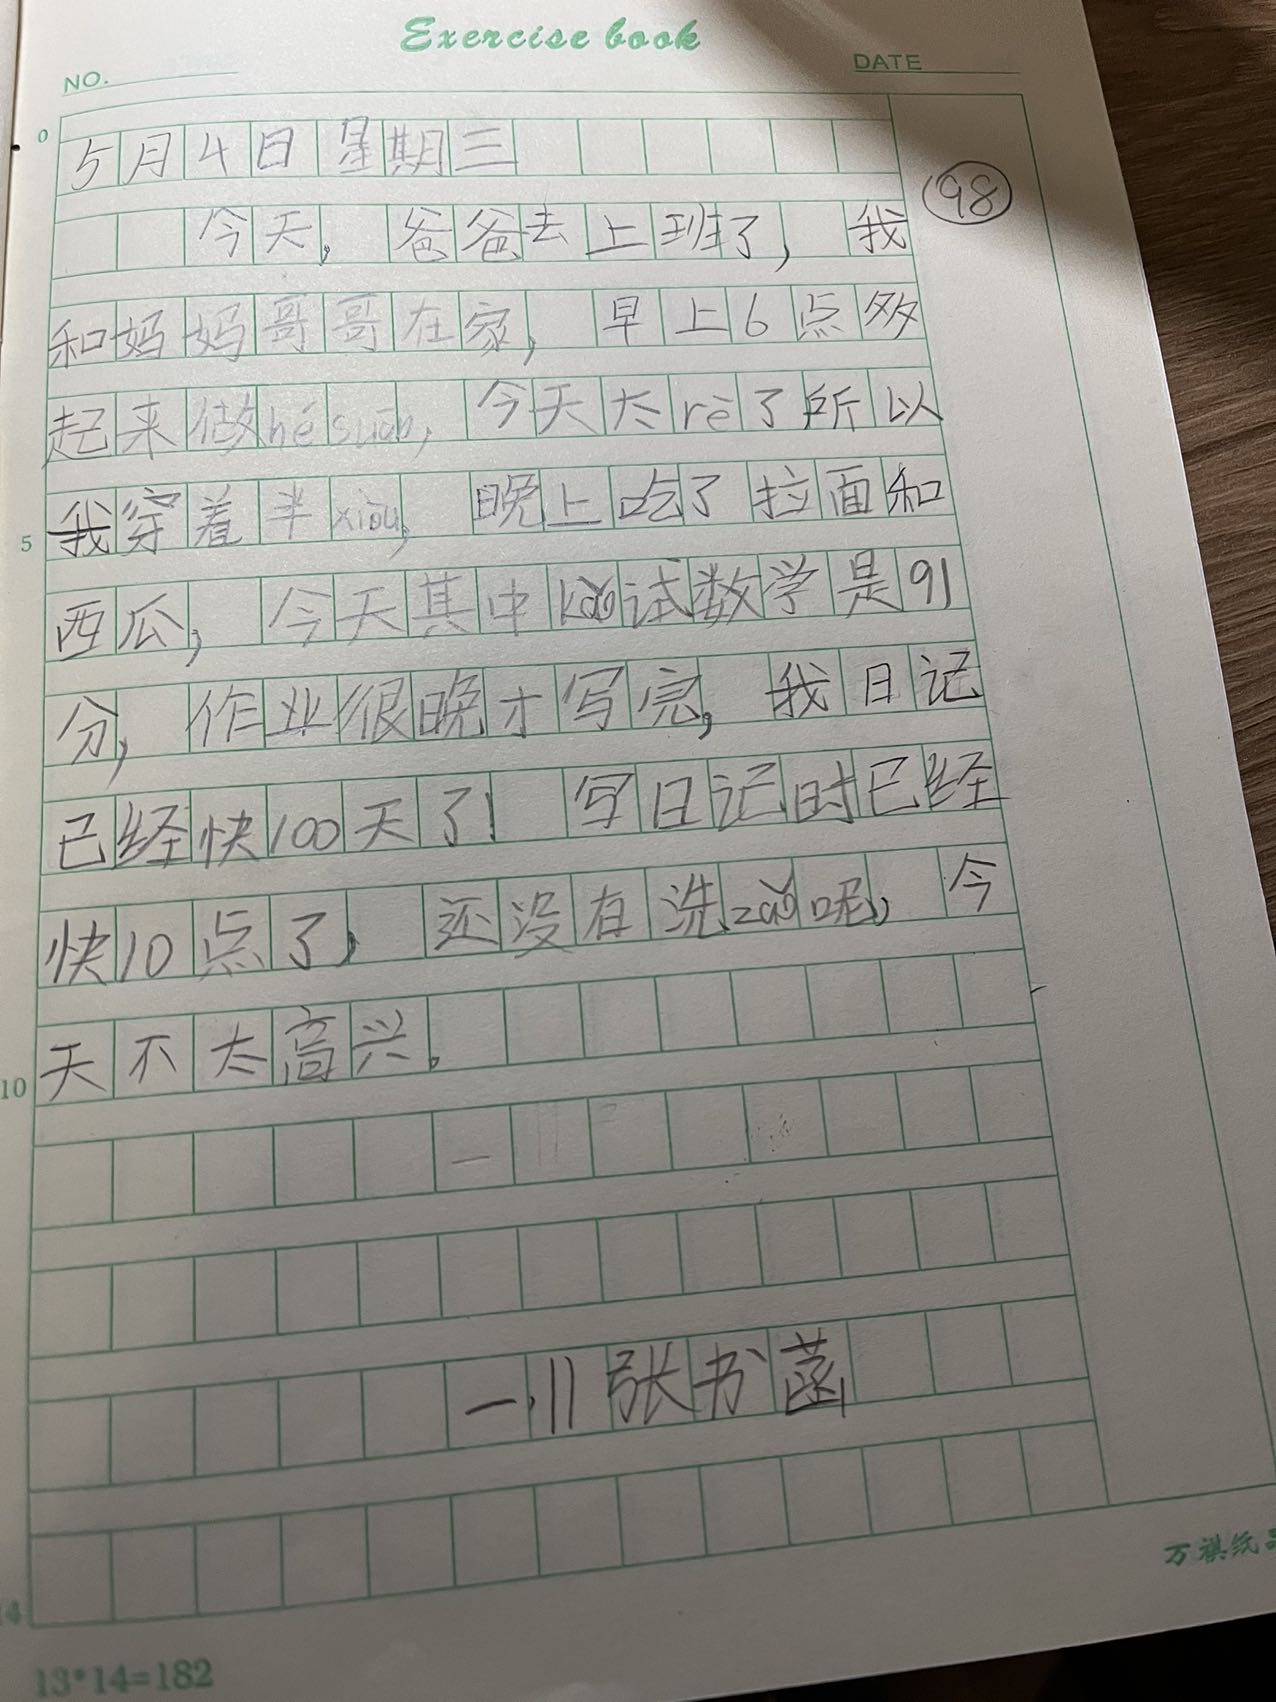 Exercise book
NO.
DATE
0
5月4日星期三
98
今天，爸爸去上班了，我
和妈妈哥哥在家，早上6点多
起来做hé suān，今天太rè了所以
我穿着半xiòu，晚上吃了拉面和
5
西瓜，今天其中kǎo试数学是91
分，作业很晚才写完，我日记
已经快100天了！写日记时已经
快10点了，还没有洗zǎo呢，今
天不太高兴。
10
一.11张书菡
万祺纸
14
13*14=182